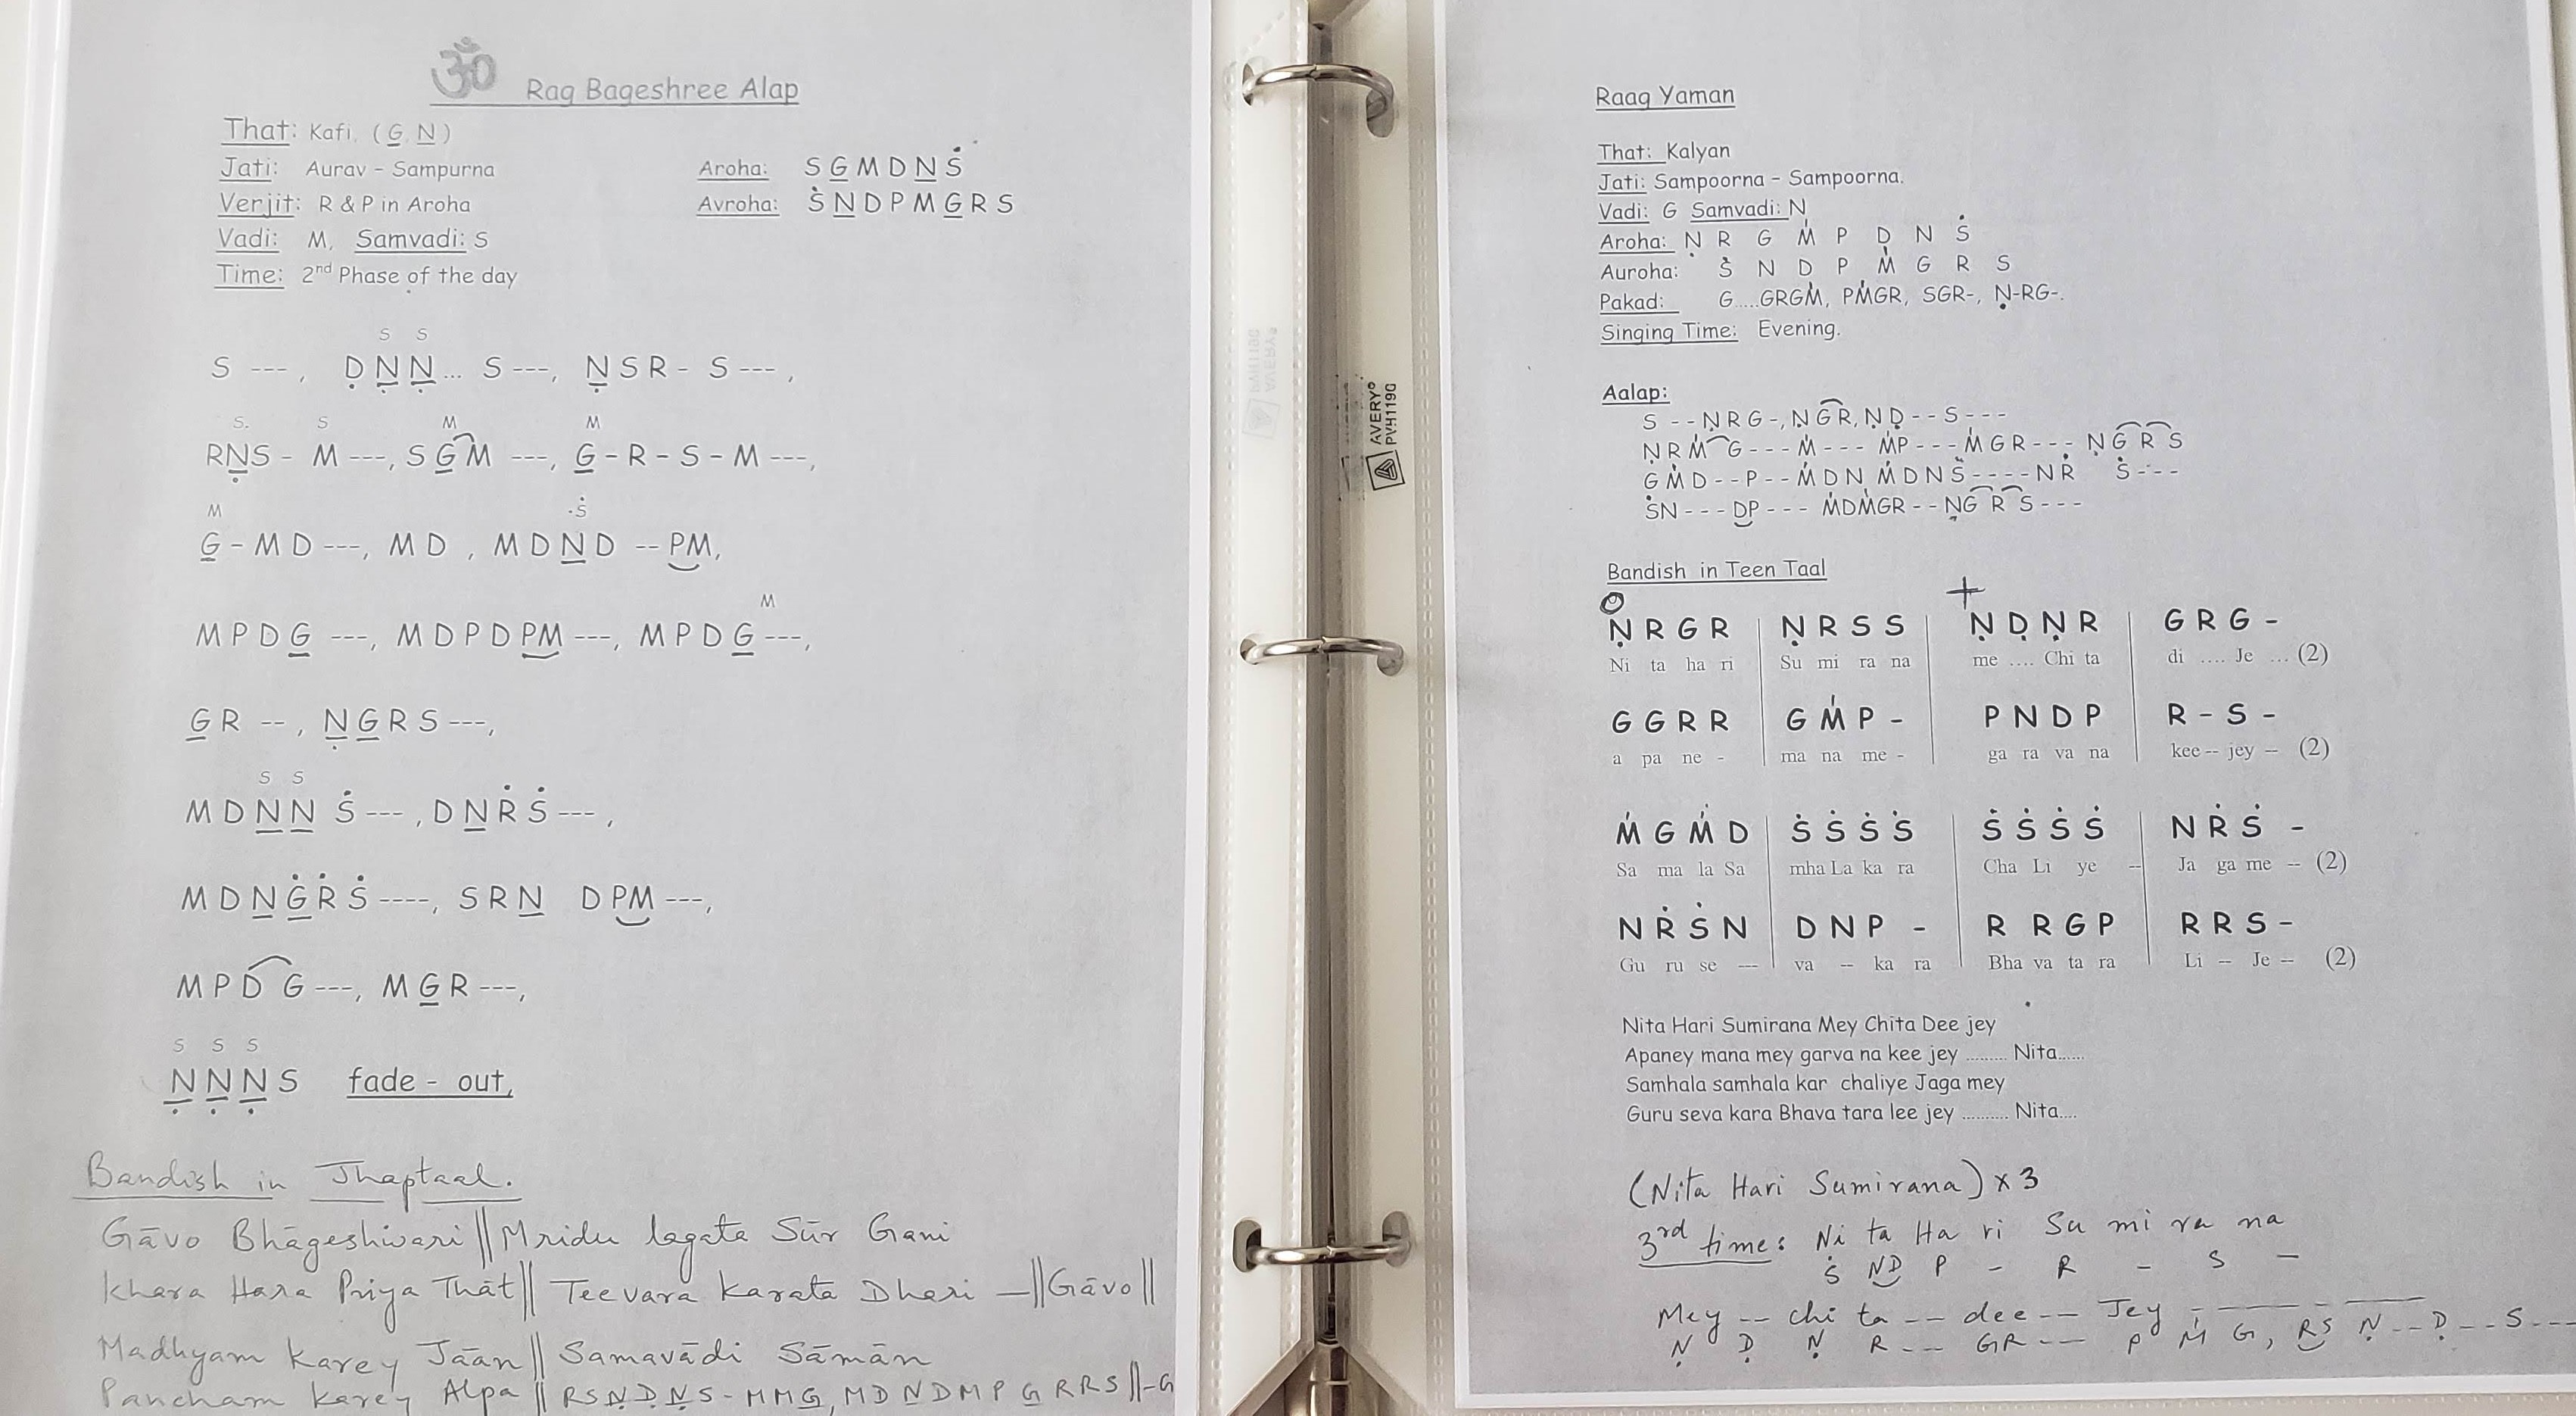 ॐ Rag Bageshree Alap
That: Kafi, (G̲ N̲)
Jati: Aurav - Sampurna Aroha: S G̲ M D N̲ Ṡ
Verjit: R & P in Aroha Avroha: Ṡ N̲ D P M G̲ R S
Vadi: M, Samvadi: S
Time: 2nd Phase of the day
S S
S --- , Ḍ Ṇ̲ Ṇ̲ ... S ---, Ṇ̲ S R - S --- ,
S. S M M
R Ṇ̲ S - M ---, S G̲ M ---, G̲ - R - S - M ---,
M Ṡ
G̲ - M D ---, M D , M D N̲ D -- PM,
M
M P D G̲ ---, M D P D PM ---, M P D G̲ ---,
G̲ R -- , Ṇ̲ G̲ R S ---,
S S
M D N̲ N̲ Ṡ --- , D N̲ Ṙ Ṡ --- ,
M D N̲ Ġ̲ Ṙ Ṡ ----, S R N̲ D PM ---,
M P D G ---, M G̲ R ---,
S S S
Ṇ̲ Ṇ̲ Ṇ̲ S fade - out,
Bandish in Jhaptaal.
Gāvo Bhāgeshwari || Mridu lagata Sūr Gani
Khara Hara Priya Thāt || Teevara Karata Dhari —||Gāvo||
Madhyam Karey Jāān || Samavādi Sāmān
Pancham Karey Alpa || R S Ṇ̲ Ḍ Ṇ̲ S - M M G̲, M D N̲ D M P G̲ R R S ||-G
AVERY®
PVH119G
Raag Yaman
That: Kalyan
Jati: Sampoorna - Sampoorna.
Vadi: G Samvadi: N
Aroha: Ṇ R G M̍ P D N Ṡ
Auroha: Ṡ N D P M̍ G R S
Pakad: G.....GRGM̍, PM̍GR, SGR-, Ṇ-RG-.
Singing Time: Evening.
Aalap:
S - - Ṇ R G -, Ṇ G R, Ṇ Ḍ - - S - - -
Ṇ R M̍ G - - - M̍ - - - M̍P - - - M̍ G R - - - Ṇ G R S
G M̍ D - - P - - M̍ D N M̍ D N Ṡ - - - - N Ṙ Ṡ - - -
ṠN - - - DP - - - M̍DM̍GR - - ṆG R S - - -
Bandish in Teen Taal
+
Ṇ R G R | Ṇ R S S | Ṇ Ḍ Ṇ R | G R G -
Ni ta ha ri Su mi ra na me .... Chi ta di .... Je ... (2)
G G R R | G M̍ P - | P N D P | R - S -
a pa ne - ma na me - ga ra va na kee -- jey – (2)
M̍ G M̍ D | Ṡ Ṡ Ṡ Ṡ | Ṡ Ṡ Ṡ Ṡ | N Ṙ Ṡ -
Sa ma la Sa mha La ka ra Cha Li ye -- Ja ga me -- (2)
N Ṙ Ṡ N | D N P - | R R G P | R R S -
Gu ru se --- va -- ka ra Bha va ta ra Li -- Je -- (2)
Nita Hari Sumirana Mey Chita Dee jey
Apaney mana mey garva na kee jey ......... Nita......
Samhala samhala kar chaliye Jaga mey
Guru seva kara Bhava tara lee jey .......... Nita....
(Nita Hari Sumirana) x 3
3rd time: Ni ta Ha ri Su mi ra na
Ṡ ND P - R - S -
Mey -- chi ta -- dee -- Jey - —— - ——
Ṇ Ḍ Ṇ R -- GR --- P M̍ G, RS Ṇ --- Ḍ --- S ---